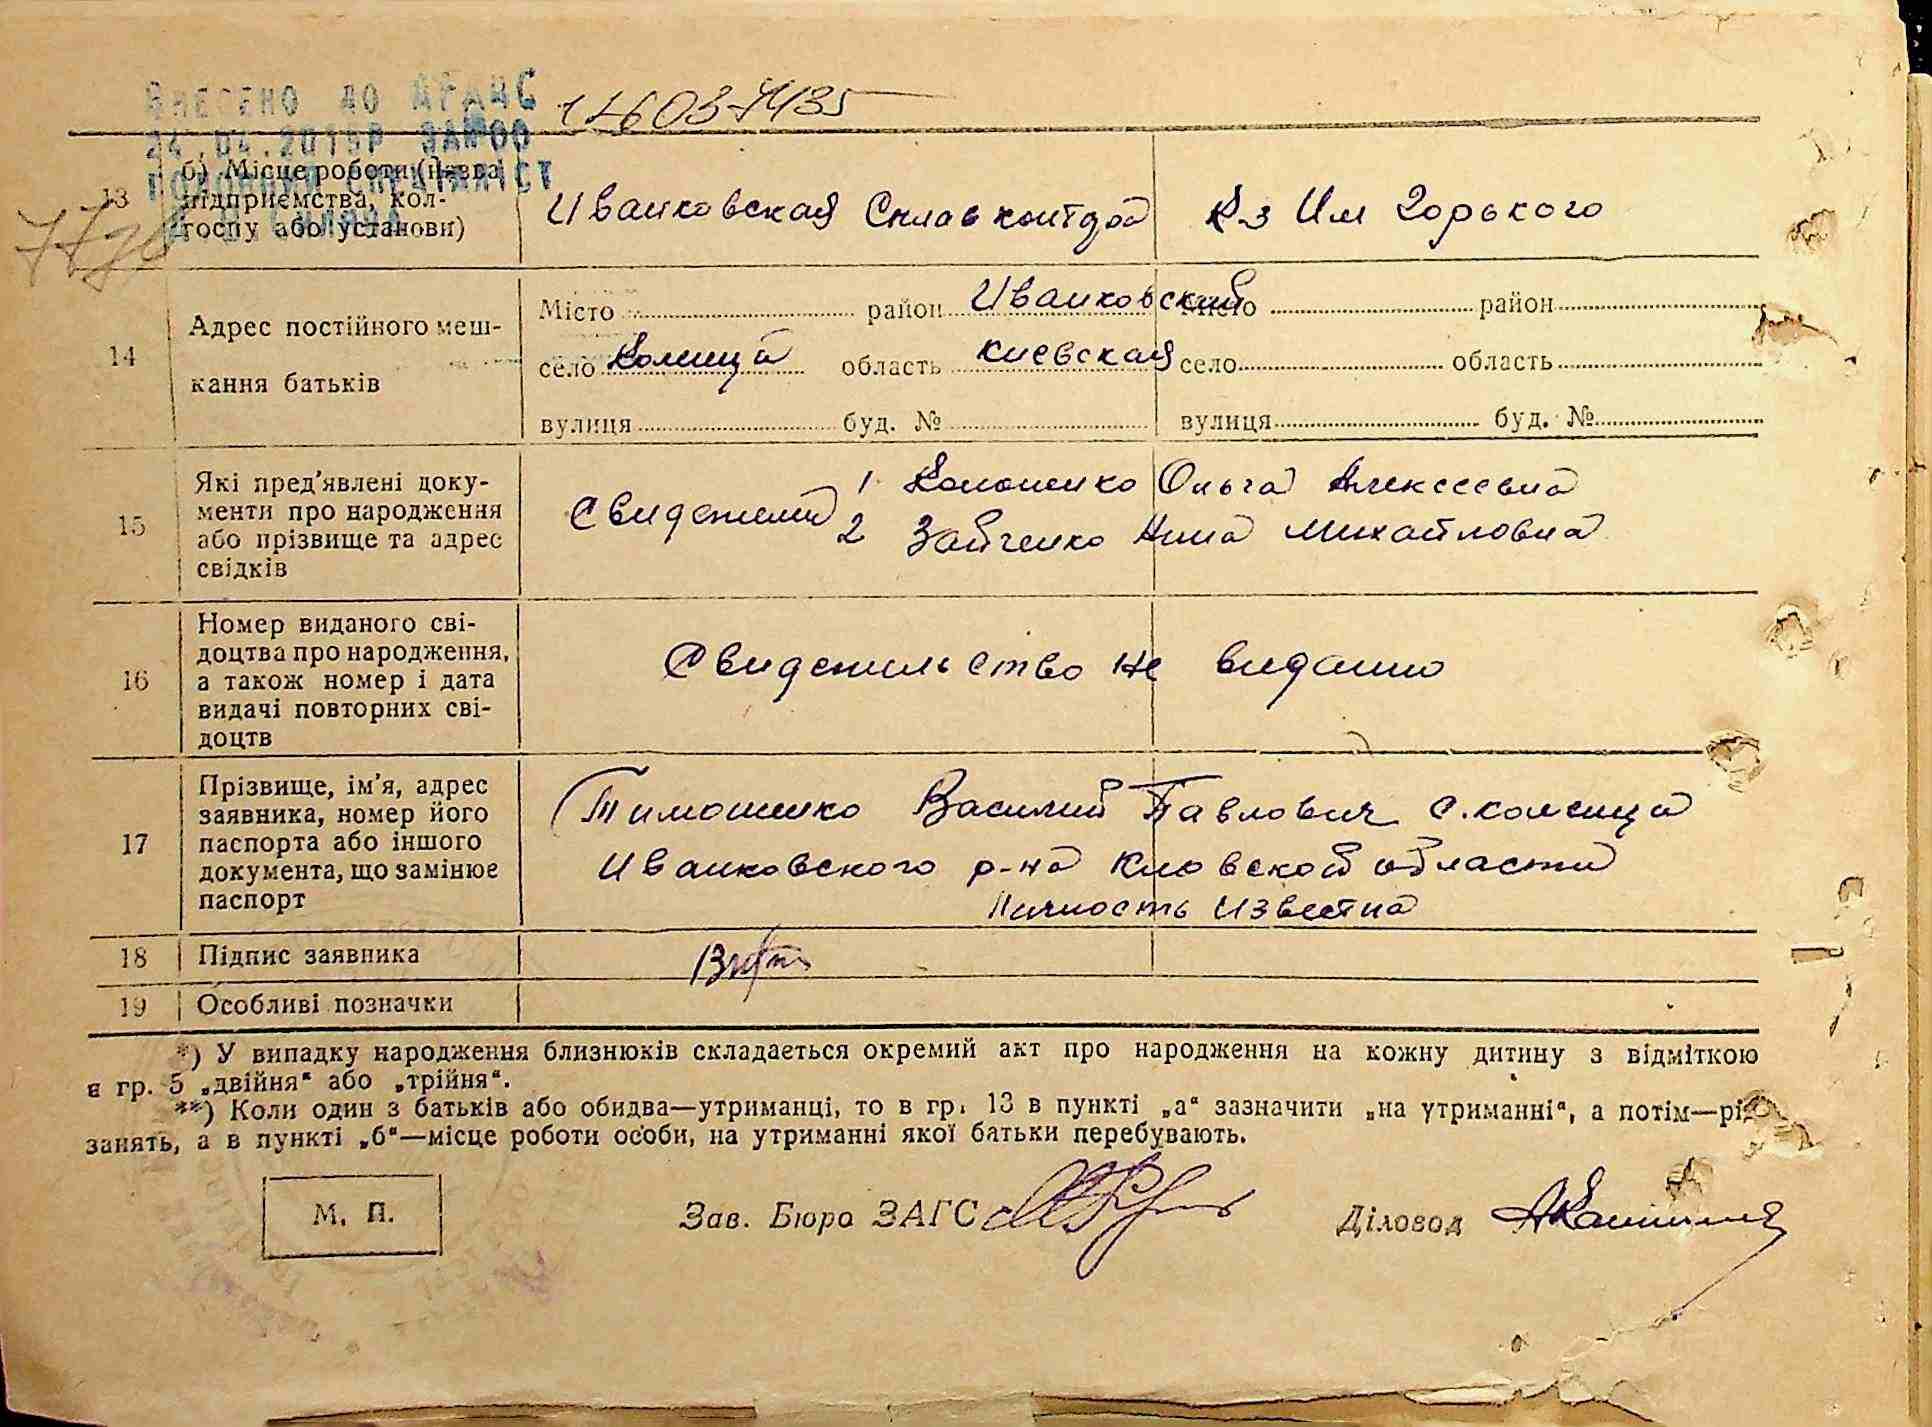 ВНЕСЕНО ДО ДРАЦС 126037435
24.04.2015Р ЗАП 00
ГОЛОВНИЙ СПЕЦІАЛІСТ
13 б) Місце роботи (назва підприємства, кол-
госпу або установи) Иванковская Сплавконтора Кз Им Горького
14 Адрес постійного меш-
кання батьків
Місто район Иванковский Місто район
село область Киевская село область
вулиця буд. № вулиця буд. №
15 Які пред'явлені доку-
менти про народження
або прізвище та адрес
свідків
Свидетели 1 Кононенко Ольга Алексеевна
2 Зайченко Нина Михайловна
16 Номер виданого сві-
доцтва про народження,
а також номер і дата
видачі повторних сві-
доцтв
Свидетельство не виданно
17 Прізвище, ім'я, адрес
заявника, номер його
паспорта або іншого
документа, що замінює
паспорт
Тимошенко Василий Павлович с.
Иванковского р-на Киевской области
Личность известна
18 Підпис заявника
19 Особливі позначки
*) У випадку народження близнюків складається окремий акт про народження на кожну дитину з відміткою
в гр. 5 „двійня“ або „трійня“.
**) Коли один з батьків або обидва—утриманці, то в гр. 13 в пункті „а“ зазначити „на утриманні“, а потім—рід
занять, а в пункті „б“—місце роботи особи, на утриманні якої батьки перебувають.
М. П. Зав. Бюро ЗАГС Діловод